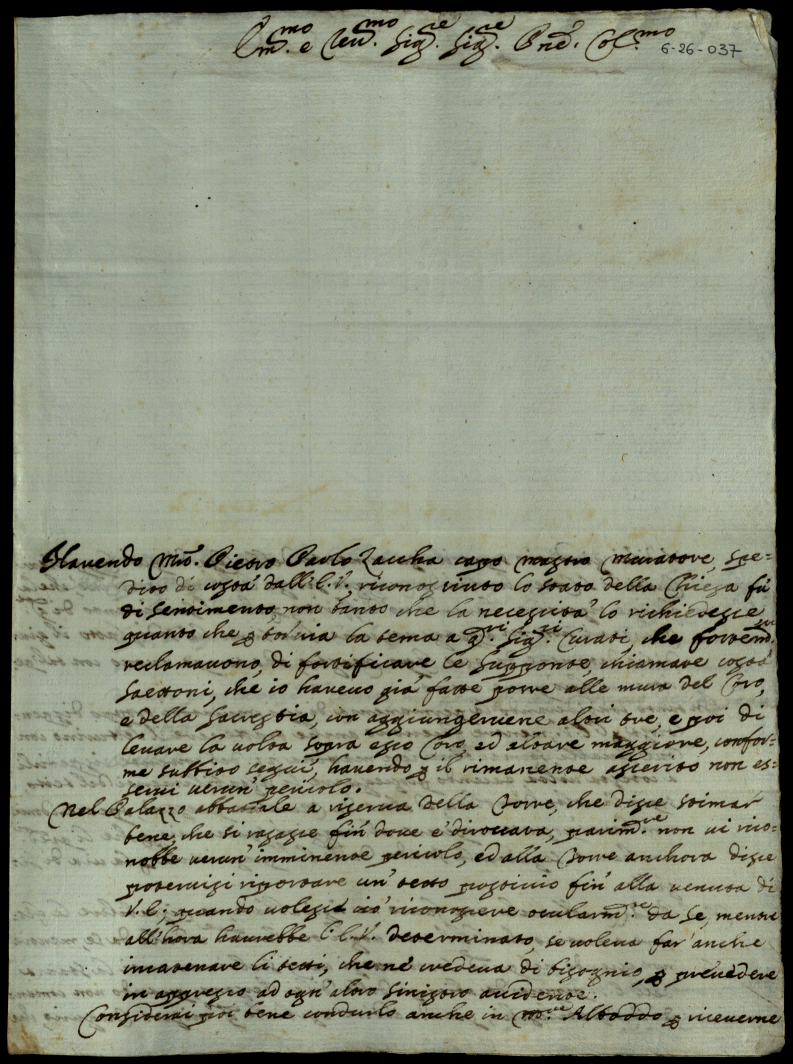 Ill.mo e Rev.mo Sig.re Sig.re Pnē. Col.mo
6-26-037
Havendo Mrō. Pietro Paolo Zaccha capo mastro muratore, spe=
dito di costà dall'E.V. riconosciuto lo stato della Chiesa fù
di sentimento non tanto che la necessità lo richiedesse
quanto che p torvia la tema a q.sti Sig.ri Curati, che fortem.te
reclamavono, di fortificare le supponte, chiamate costà
saettoni, che io havevo già fatte porre alle mura del Coro,
e della Sacrestia, con aggiungervene altri tre, e poi di
levare la volta sopra esso Coro, ed altare maggiore, confor=
me subbito seguì, havendo p il rimanente asserito non es=
servi verun' pericolo.
Nel Palazzo abbatiale a riserva della Torre, che disse stimar
bene, che si rasasse fin' dove è diroccata, parim.te non vi rico=
nobbe verun' imminente pericolo, ed alla Torre anchora disse
potervisi riportare un' tetto posticcio fin' alla venuta di
V.E; quando volesse ciò riconoscere ocularm.te da se, mentre
all'hora havrebbe l'E.V. determinato, se voleva far' anche
incatenare li tetti, che nè vedeva di bisognio, p prevedere
in appresso ad ogn' altro sinistro accidente.
Considerai poi bene condurlo anche in Altoddo p riceverne